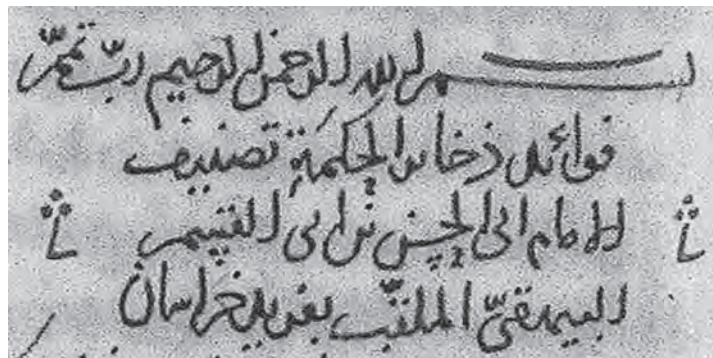 بسم الله الرحمن الرحيم ربّ تمّم
فوائد ذخائر الحكمة تصنيف
الامام ابى الحسن بن ابى القسم
البيهقىّ الملقّب بفريد خراسان